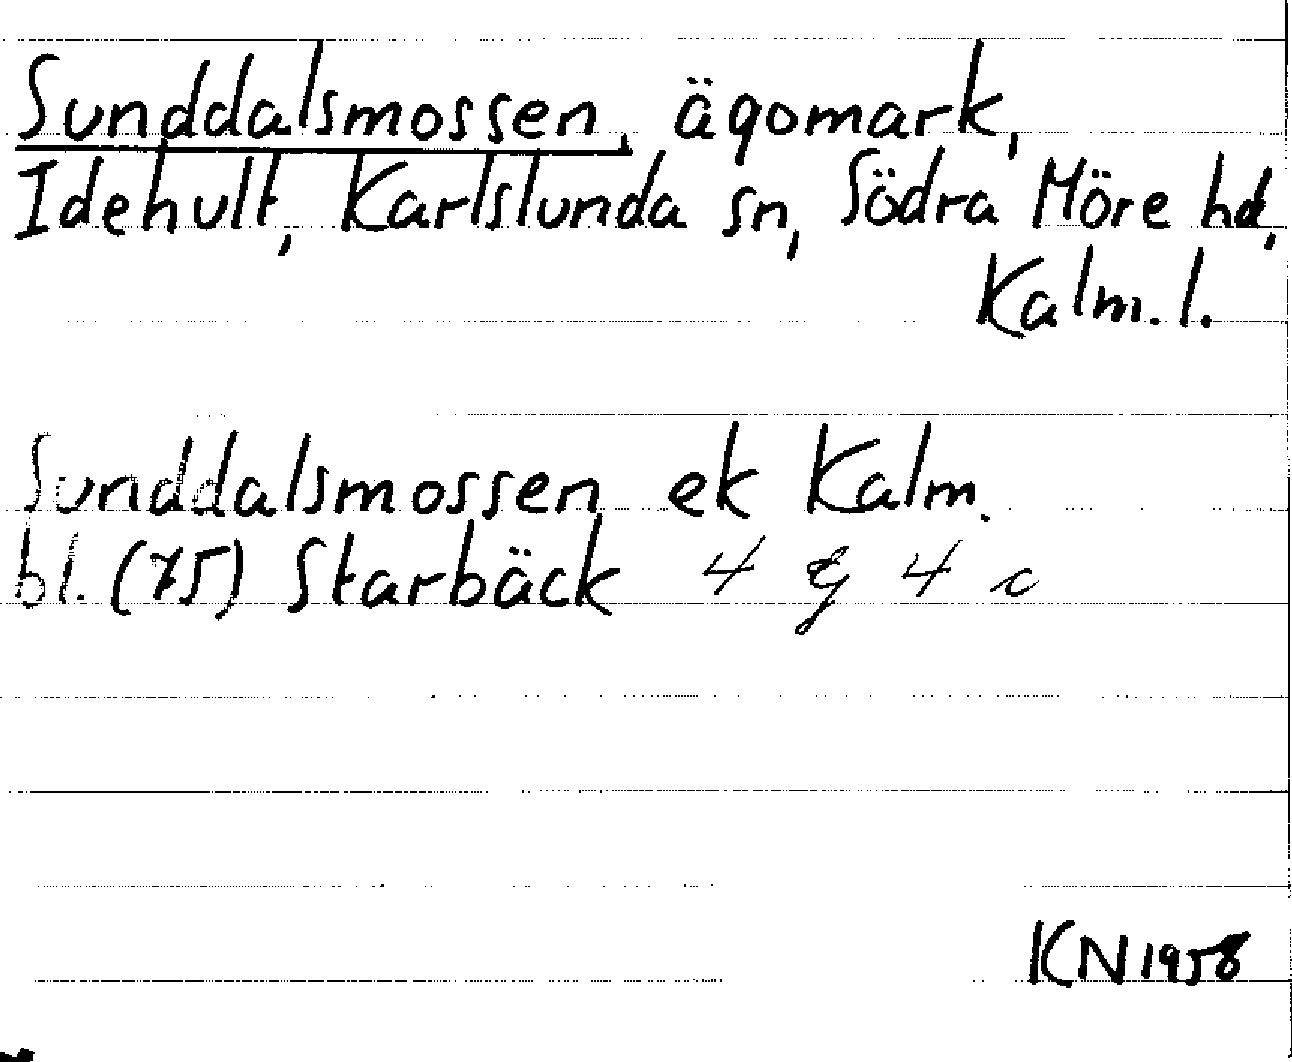 Sunddalsmossen, ägomark,
Idehult, Karlslunda sn, Södra Möre hd,
Kalm. l.
Sunddalsmossen ek Kalm.
bl. (75) Starbäck 4 g 4 c
KN 1958